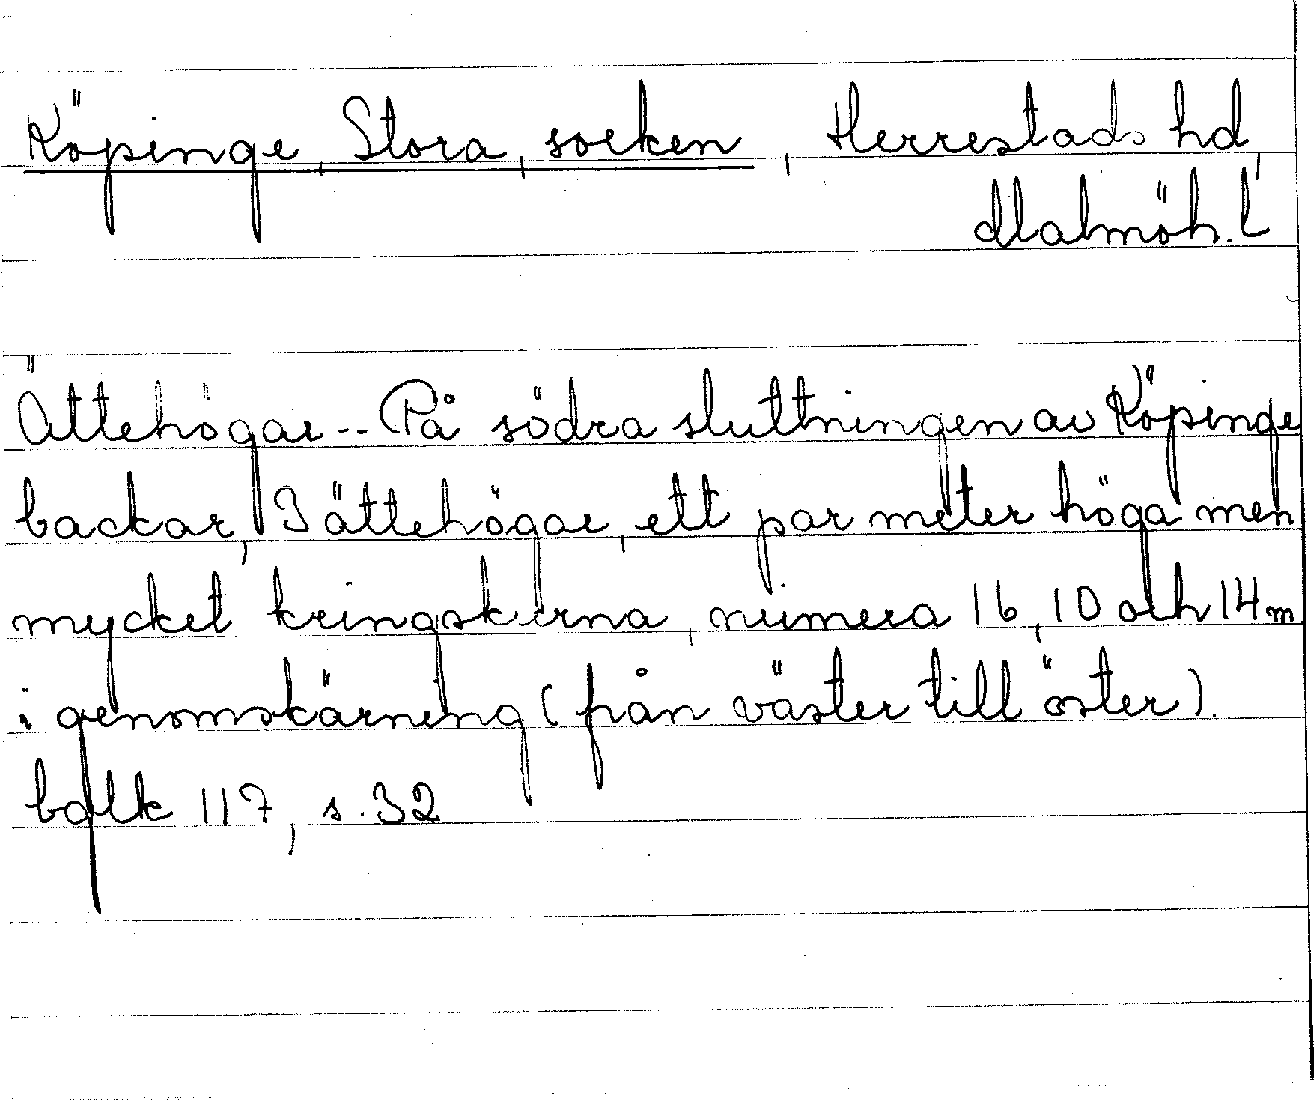 Köpinge, Stora, socken, Herrestads hd,
Malmöh. L
Ättehögar -- På södra sluttningen av Köpinge
backar, 3 ättehögar, ett par meter höga men
mycket kringskurna, numera 16, 10 och 14 m
i genomskärning (från väster till öster).
balk 117, s. 32